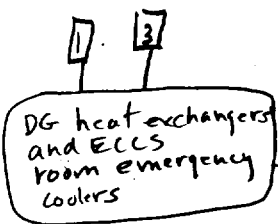 1 3
DG heat exchangers
and ECCS
room emergency
coolers